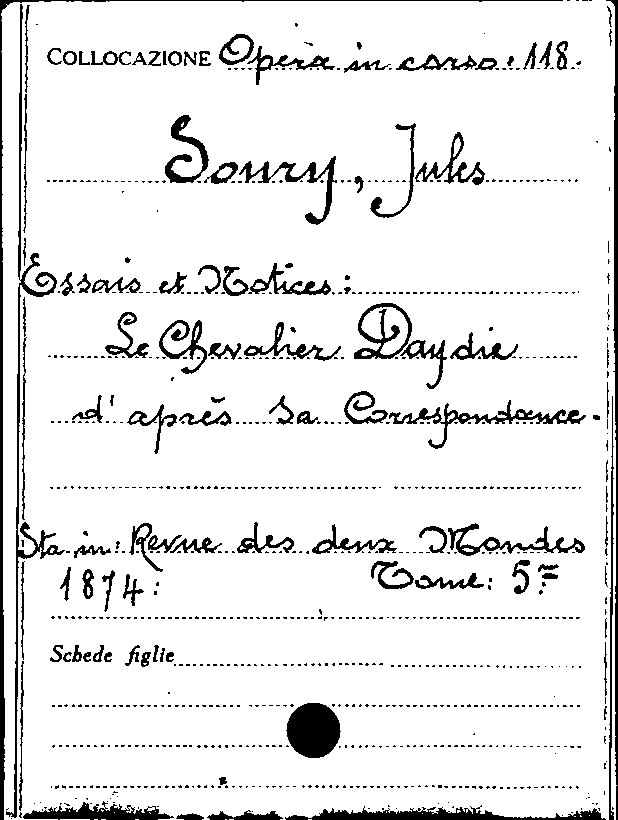 COLLOCAZIONE Opera in corso. 118.
Soury, Jules
Essais et Notices:
Le Chevalier Daydie
d'après sa Correspondance.
Sta in: Revue des deux Mondes
1874: Tome: 5º
Schede figlie